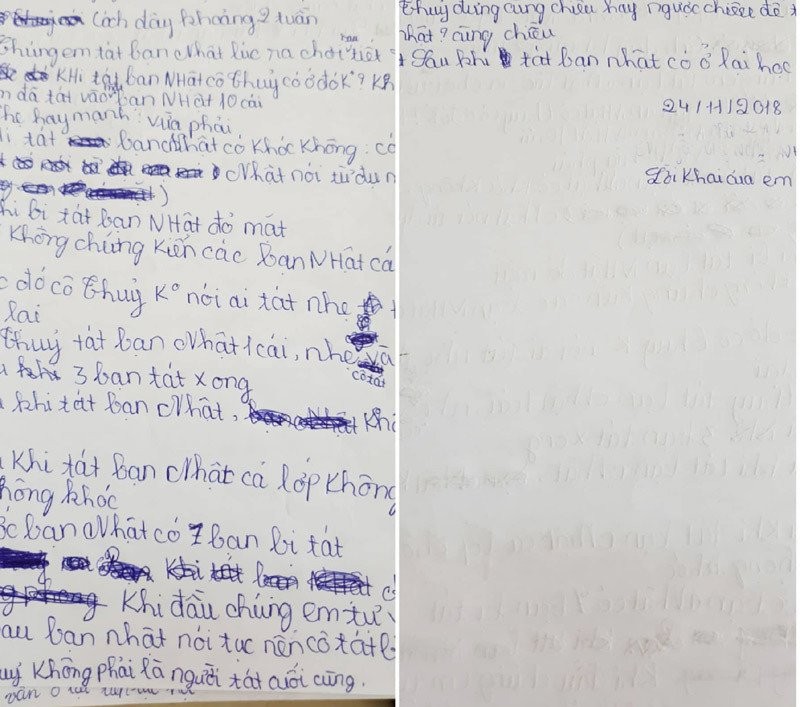 Cách đây khoảng 2 tuần
Chúng em tát bạn Nhật lúc ra chơi sau tiết
Khi tát bạn Nhật có Thuỷ có ở đó K° ?
đã tát vào bạn Nhật 10 cái
nhẹ hay mạnh: vừa phải
tát bạn Nhật có khóc không: có
Nhật nói từ
bị tát bạn Nhật đỏ mắt
Không chứng kiến các bạn Nhật
đó cô Thuỷ K° nói ai tát nhẹ
lại
Thuỷ tát bạn Nhật 1 cái, nhẹ và
cô tát
3 bạn tát xong
khi tát bạn Nhật,
Khi tát bạn Nhật cả lớp không
khóc
bạn Nhật có 7 bạn bị tát
Khi đầu chúng em tự
bạn nhật nói tục nên cô tát
Không phải là người tát cuối cùng.
Thuỷ dựng cùng chiều hay ngược chiều
nhật ? cùng chiều
+ Sau khi tát bạn nhật có ở lại học
24/11/2018
Lời khai của em